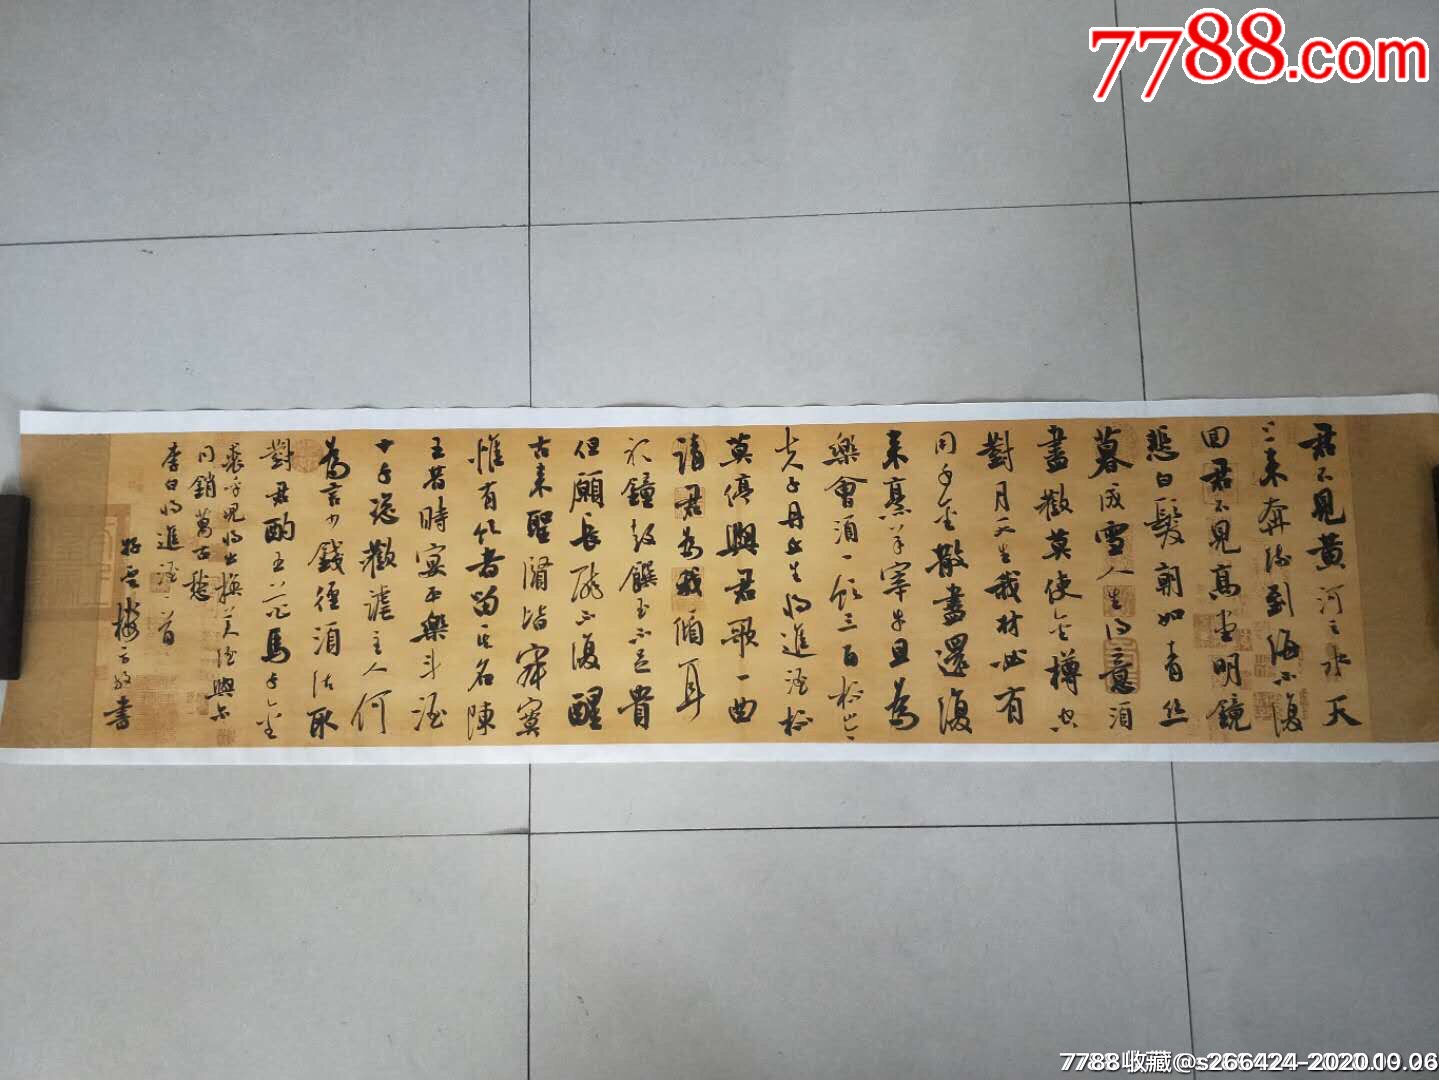 君不見黃河之水天
上來奔流到海不復
回君不見高堂明鏡
悲白髮朝如青絲
暮成雪人生得意須
盡歡莫使金樽空
對月天生我材必有
用千金散盡還復
來烹羊宰牛且為
樂會須一飲三百杯岑
夫子丹丘生將進酒杯
莫停與君歌一曲
請君為我傾耳
聽鐘鼓饌玉不足貴
但願長醉不復醒
古來聖賢皆寂寞
惟有飲者留其名陳
王昔時宴平樂斗酒
十千恣歡謔主人何
為言少錢徑須沽取
對君酌五花馬千金
裘呼兒將出換美酒與爾
同銷萬古愁
李白將進酒一首
書
7788.com
7788收藏@s266424-2020.09.06